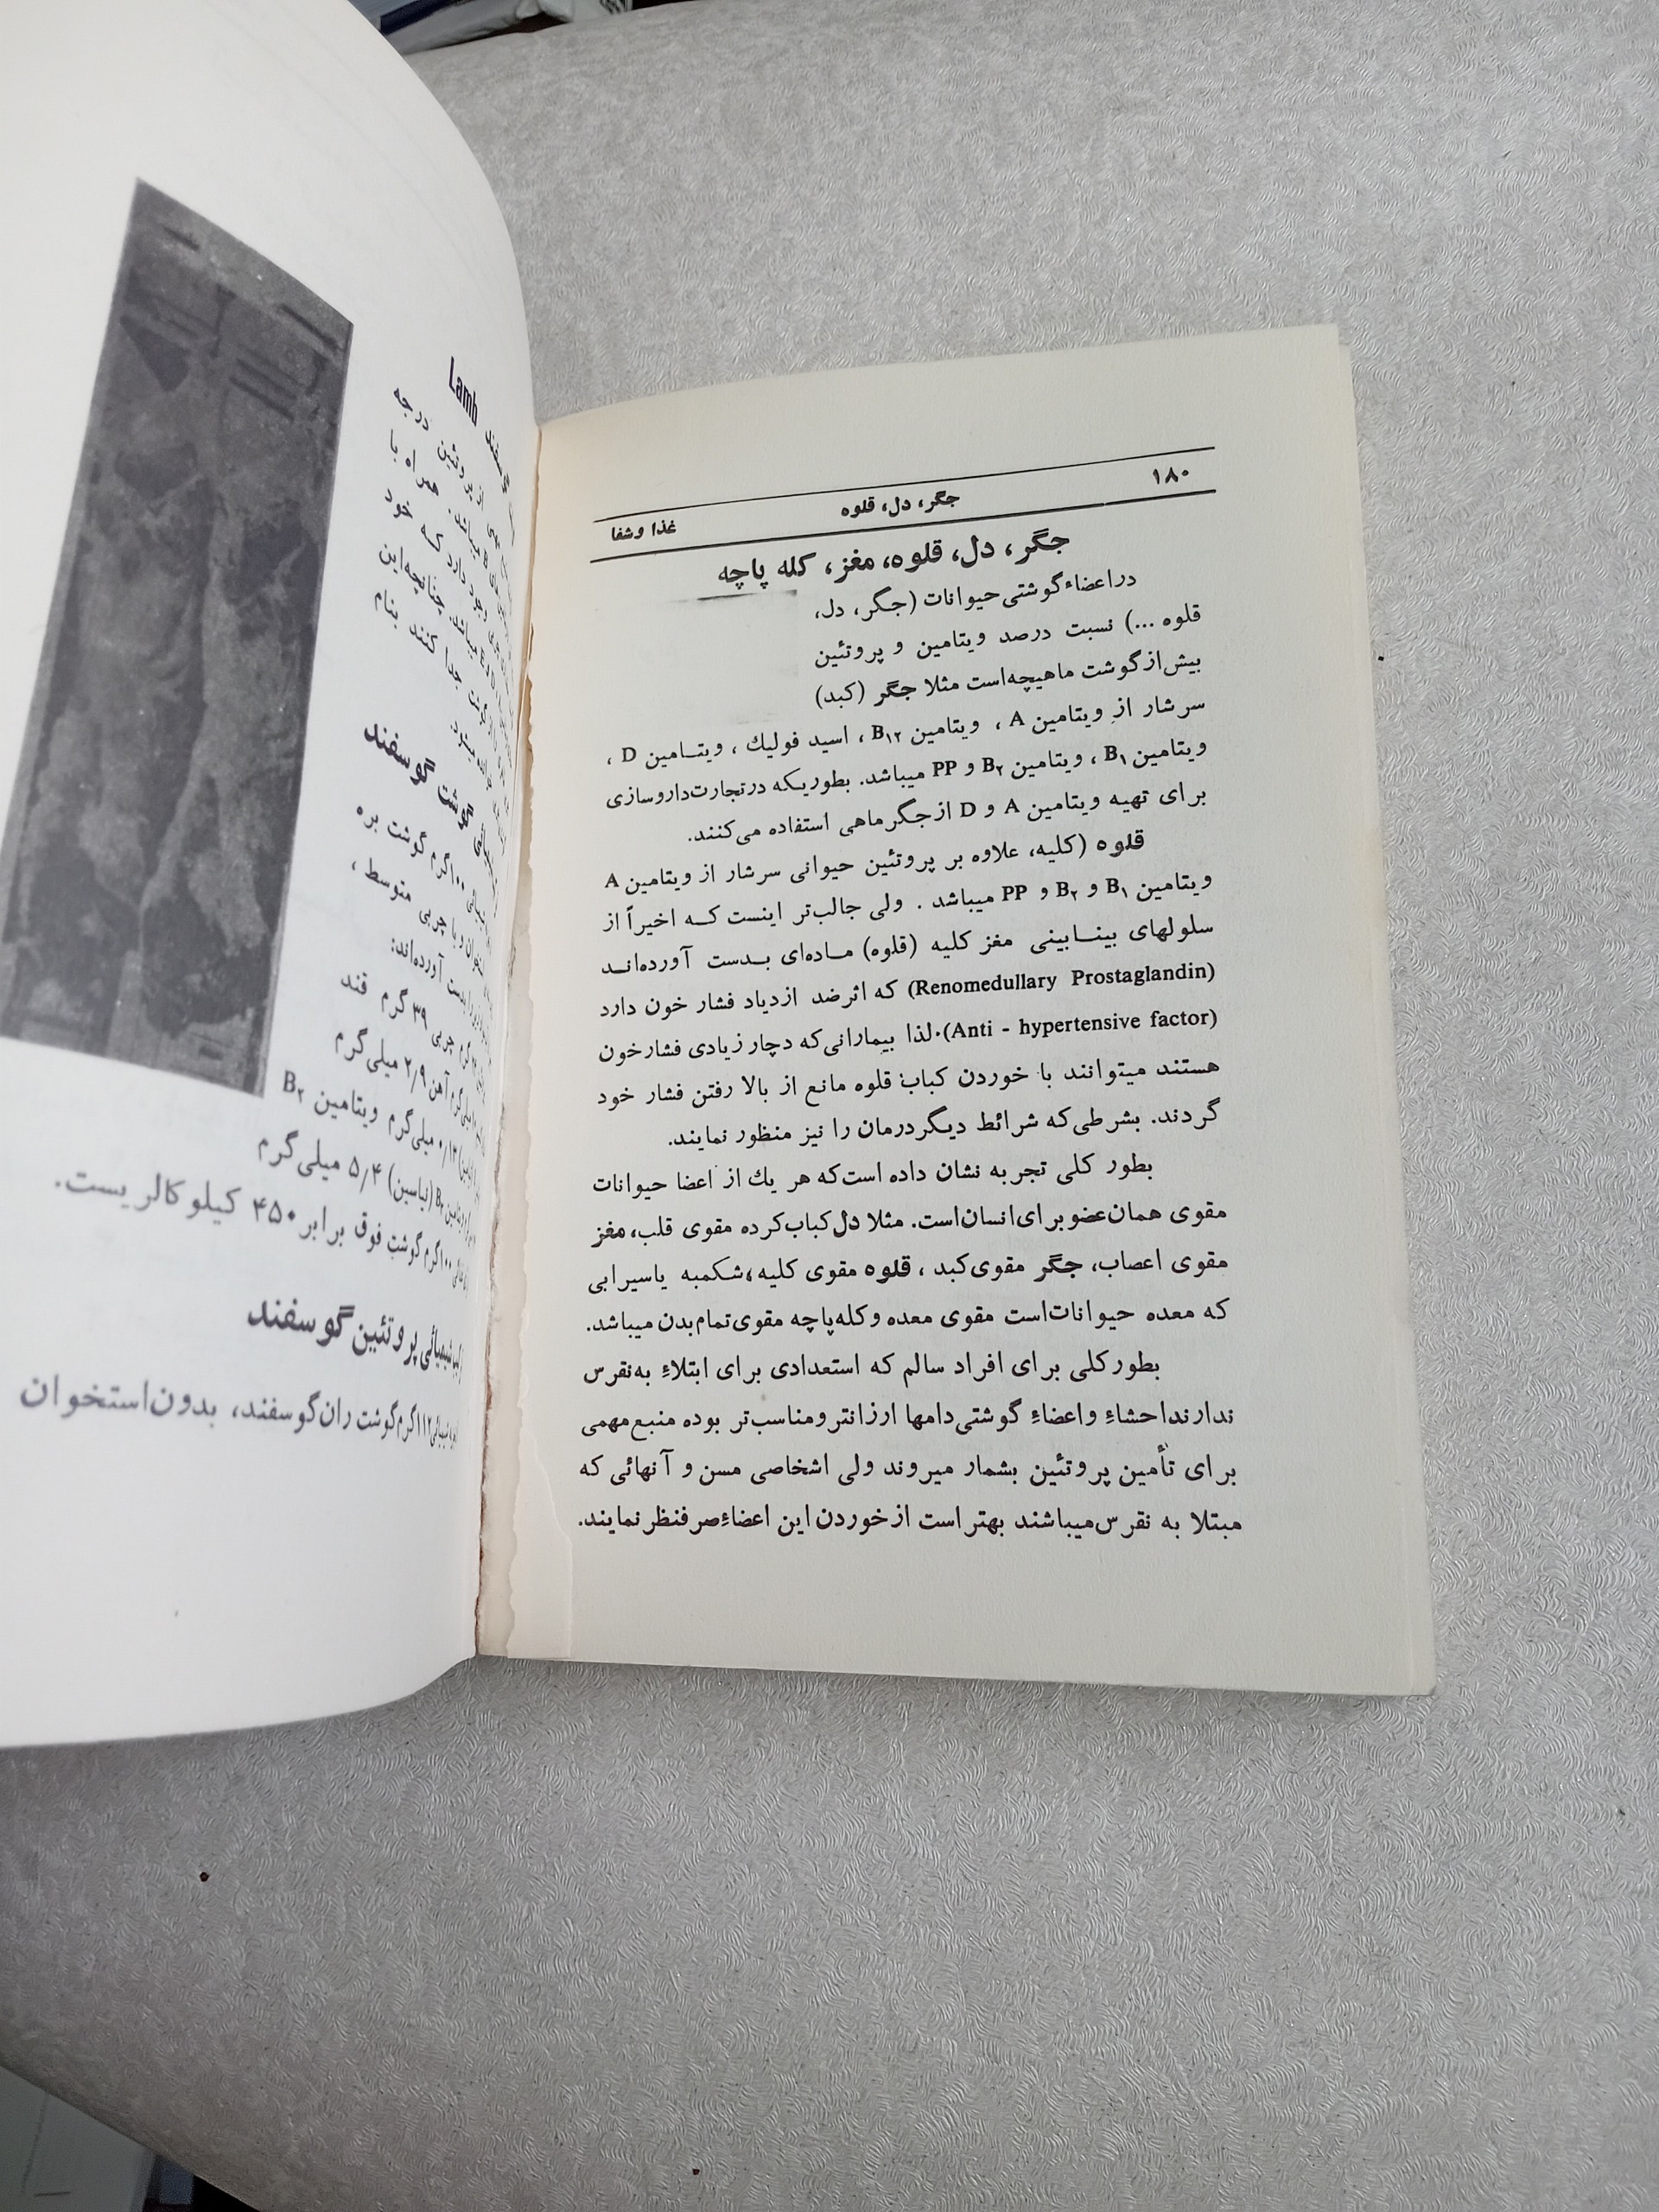 ۱۸۰
جگر، دل، قلوه
غذا وشفا
جگر، دل، قلوه، مغز، کله پاچه
در اعضاء گوشتی حیوانات (جگر، دل،
قلوه ...) نسبت درصد ویتامین و پروتئین
بیش از گوشت ماهیچه است مثلا جگر (کبد)
سرشار از ویتامین A ، ویتامین B۱۲ ، اسید فولیك ، ویتـامین D ،
ویتامین B۱ ، ویتامین B۲ و PP میباشد. بطوریکه در تجارت داروسازی
برای تهیه ویتامین A و D از جگر ماهی استفاده می‌کنند.
قلوه (کلیه، علاوه بر پروتئین حیوانی سرشار از ویتامین A
ویتامین B۱ و B۲ و PP میباشد . ولی جالب‌تر اینست کـه اخیراً از
سلولهای بینـابینی مغز کلیه (قلوه) مـاده‌ای بـدست آورده‌انـد
(Renomedullary Prostaglandin) که اثر ضد ازدیاد فشار خون دارد
(Anti - hypertensive factor).لذا بیمارانی که دچار زیادی فشار خون
هستند میتوانند با خوردن کباب قلوه مانع از بالا رفتن فشار خود
گردند. بشرطی که شرائط دیگر درمان را نیز منظور نمایند.
بطور کلی تجربه نشان داده است که هر یك از اعضا حیوانات
مقوی همان عضو برای انسان است. مثلا دل کباب کرده مقوی قلب، مغز
مقوی اعصاب، جگر مقوی کبد ، قلوه مقوی کلیه، شکمبه یا سیرابی
که معده حیوانات است مقوی معده و کله پاچه مقوی تمام بدن میباشد.
بطور کلی برای افراد سالم که استعدادی برای ابتلاءِ به نقرس
ندارند احشاءِ و اعضاءِ گوشتی دامها ارزانتر و مناسب‌تر بوده منبع مهمی
برای تأمین پروتئین بشمار میروند ولی اشخاصی مسن و آنهائی که
مبتلا به نقرس میباشند بهتر است از خوردن این اعضاءِ صرفنظر نمایند.
گوسفند Lamb
از پروتئین درجه
میباشد. همراه با
وجود دارد کـه خود
میباشد. چنانچه این
جدا کنند بنام
گوشت گوسفند
۱۰۰ گرم گوشت بره
و با چربی متوسط ،
بدست آورده‌اند:
گرم چربی ۳۹ گرم قند
آهن ۲/۹ میلی‌گرم
۰/۱۳ میلی‌گرم ویتامین B۲
(نیاسین) ۵/۴ میلی‌گرم
۱۰۰ گرم گوشت فوق برابر ۴۵۰ کیلو کالریست.
پروتئین گوسفند
۱۱۲ گرم گوشت ران گوسفند، بدون استخوان